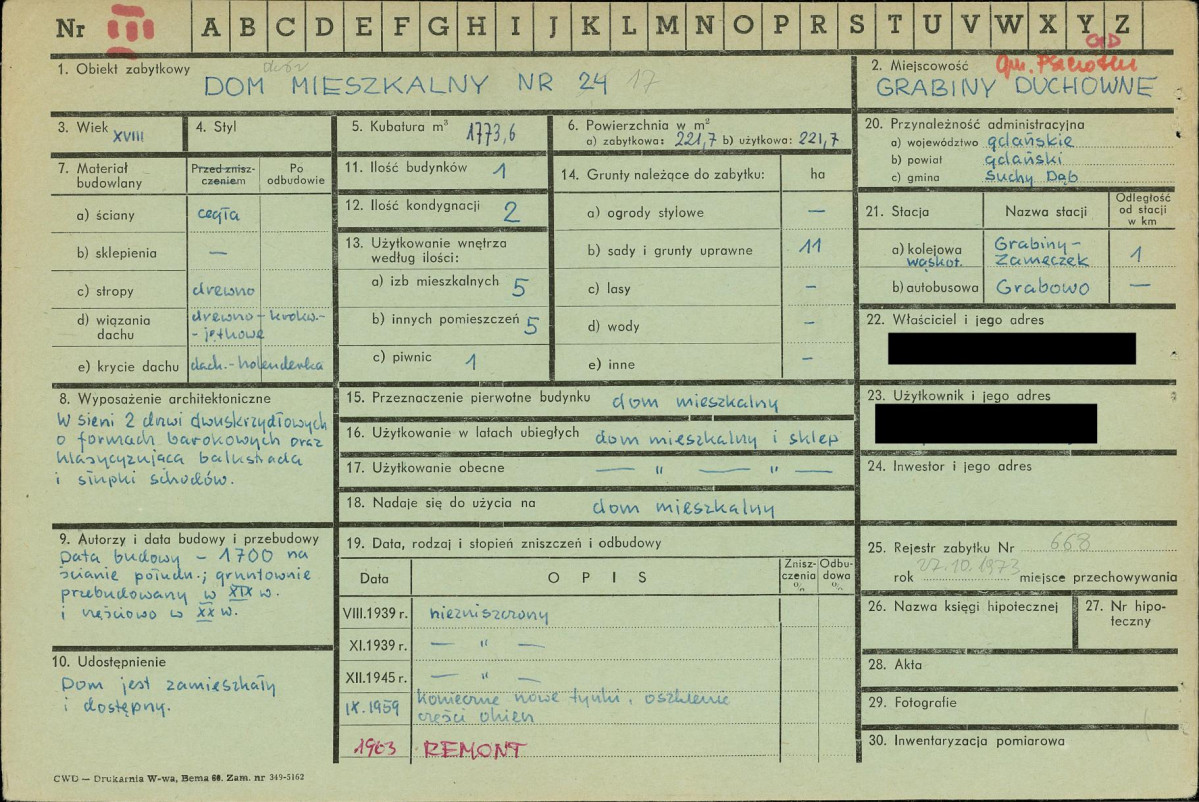 Nr III A B C D E F G H I J K L M N O P R S T U V W X Y Z
GD
1. Obiekt zabytkowy
DOM MIESZKALNY NR 24 17
2. Miejscowość
gm.
GRABINY DUCHOWNE
3. Wiek XVIII
4. Styl
5. Kubatura m³ 1773,6
6. Powierzchnia w m²
a) zabytkowa: 221,7 b) użytkowa: 221,7
20. Przynależność administracyjna
a) województwo gdańskie
b) powiat gdański
c) gmina Suchy Dąb
7. Materiał budowlany
Przed znisz-
czeniem
Po
odbudowie
a) ściany cegła
b) sklepienia —
c) stropy drewno
d) wiązania dachu drewno - krokw.-
- jętkowe
e) krycie dachu dach.- holenderka
11. Ilość budynków 1
12. Ilość kondygnacji 2
13. Użytkowanie wnętrza
według ilości:
a) izb mieszkalnych 5
b) innych pomieszczeń 5
c) piwnic 1
14. Grunty należące do zabytku: ha
a) ogrody stylowe —
b) sady i grunty uprawne 11
c) lasy -
d) wody -
e) inne -
21. Stacja
Nazwa stacji
Odległość
od stacji
w km
a) kolejowa
wąskot.
Grabiny-
Zameczek
1
b) autobusowa Grabowo —
22. Właściciel i jego adres
8. Wyposażenie architektoniczne
W sieni 2 drzwi dwuskrzydłowych
o formach barokowych oraz
klasycyzująca balustrada
i słupki schodów.
15. Przeznaczenie pierwotne budynku dom mieszkalny
16. Użytkowanie w latach ubiegłych dom mieszkalny i sklep
17. Użytkowanie obecne — " — " —
18. Nadaje się do użycia na dom mieszkalny
23. Użytkownik i jego adres
24. Inwestor i jego adres
9. Autorzy i data budowy i przebudowy
Data budowy - 1700 na
ścianie połudn.; gruntownie
przebudowany w XIX w.
i częściowo w XX w.
19. Data, rodzaj i stopień zniszczeń i odbudowy
Data
OPIS
Znisz-
czenia
%
Odbu-
dowa
%
VIII.1939 r. niezniszczony
XI.1939 r. — " —
XII.1945 r. — " —
IX.1959 Konieczne nowe tynki, oszklenie
części okien
1963 REMONT
10. Udostępnienie
Dom jest zamieszkały
i dostępny.
25. Rejestr zabytku Nr 668
rok 27.10.1973 miejsce przechowywania
26. Nazwa księgi hipotecznej
27. Nr hipo-
teczny
28. Akta
29. Fotografie
30. Inwentaryzacja pomiarowa
CWD — Drukarnia W-wa, Bema 60. Zam. nr 349-5162